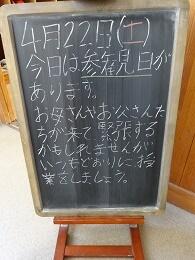 4月22日(土)
今日は参観日が
あります。
お母さんやお父さんた
ちが来て緊張する
かもしれませんが
いつもどおりに授
業をしましょう。